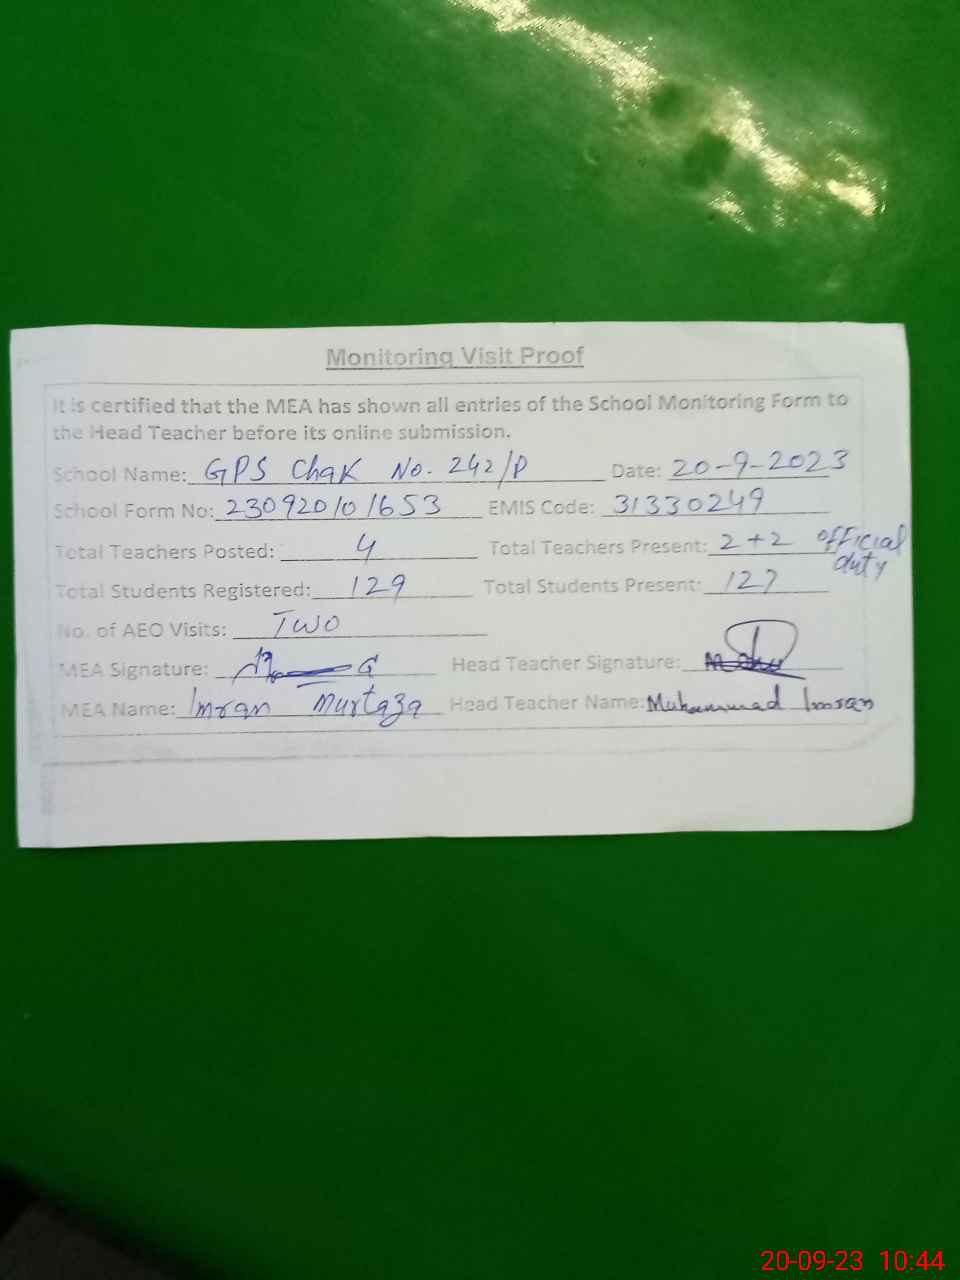 Monitoring Visit Proof
It is certified that the MEA has shown all entries of the School Monitoring Form to
the Head Teacher before its online submission.
School Name: GPS Chak No. 242/P Date: 20-9-2023
School Form No: 230920101653 EMIS Code: 31330249
Total Teachers Posted: 4 Total Teachers Present: 2+2 official duty
Total Students Registered: 129 Total Students Present: 127
No. of AEO Visits: Two
MEA Signature: Head Teacher Signature:
MEA Name: Imran Murtaza Head Teacher Name: Muhammad Imran
20-09-23 10:44